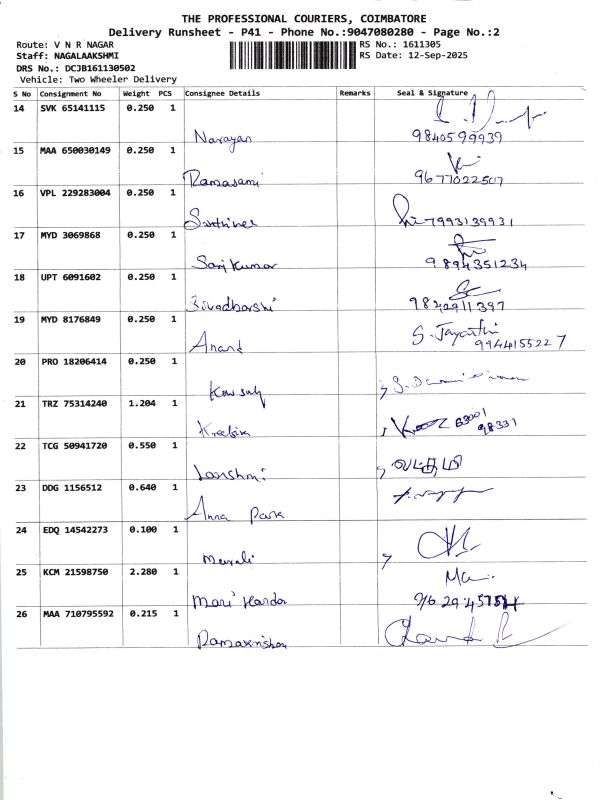 THE PROFESSIONAL COURIERS, COIMBATORE
Delivery Runsheet - P41 - Phone No.:9047080280 - Page No.:2
Route: V N R NAGAR RS No.: 1611305
Staff: NAGALAAKSHMI RS Date: 12-Sep-2025
DRS No.: DCJB161130502
Vehicle: Two Wheeler Delivery
S No Consignment No Weight PCS Consignee Details Remarks Seal & Signature
14 SVK 65141115 0.250 1
Narayan 9840599939
15 MAA 650030149 0.250 1
Ramasami 9677022507
16 VPL 229283004 0.250 1
7993139931
17 MYD 3069868 0.250 1
Sanjkumar 9894351234
18 UPT 6091602 0.250 1
9842911397
19 MYD 8176849 0.250 1
S. Jayanthi
Anand 9944155227
20 PRO 18206414 0.250 1
21 TRZ 75314240 1.204 1
63001
98331
22 TCG 50941720 0.550 1
லட்சுமி
23 DDG 1156512 0.640 1
Anna Park
24 EDQ 14542273 0.100 1
Murali
25 KCM 21598750 2.280 1
26 MAA 710795592 0.215 1
Ramakrishan